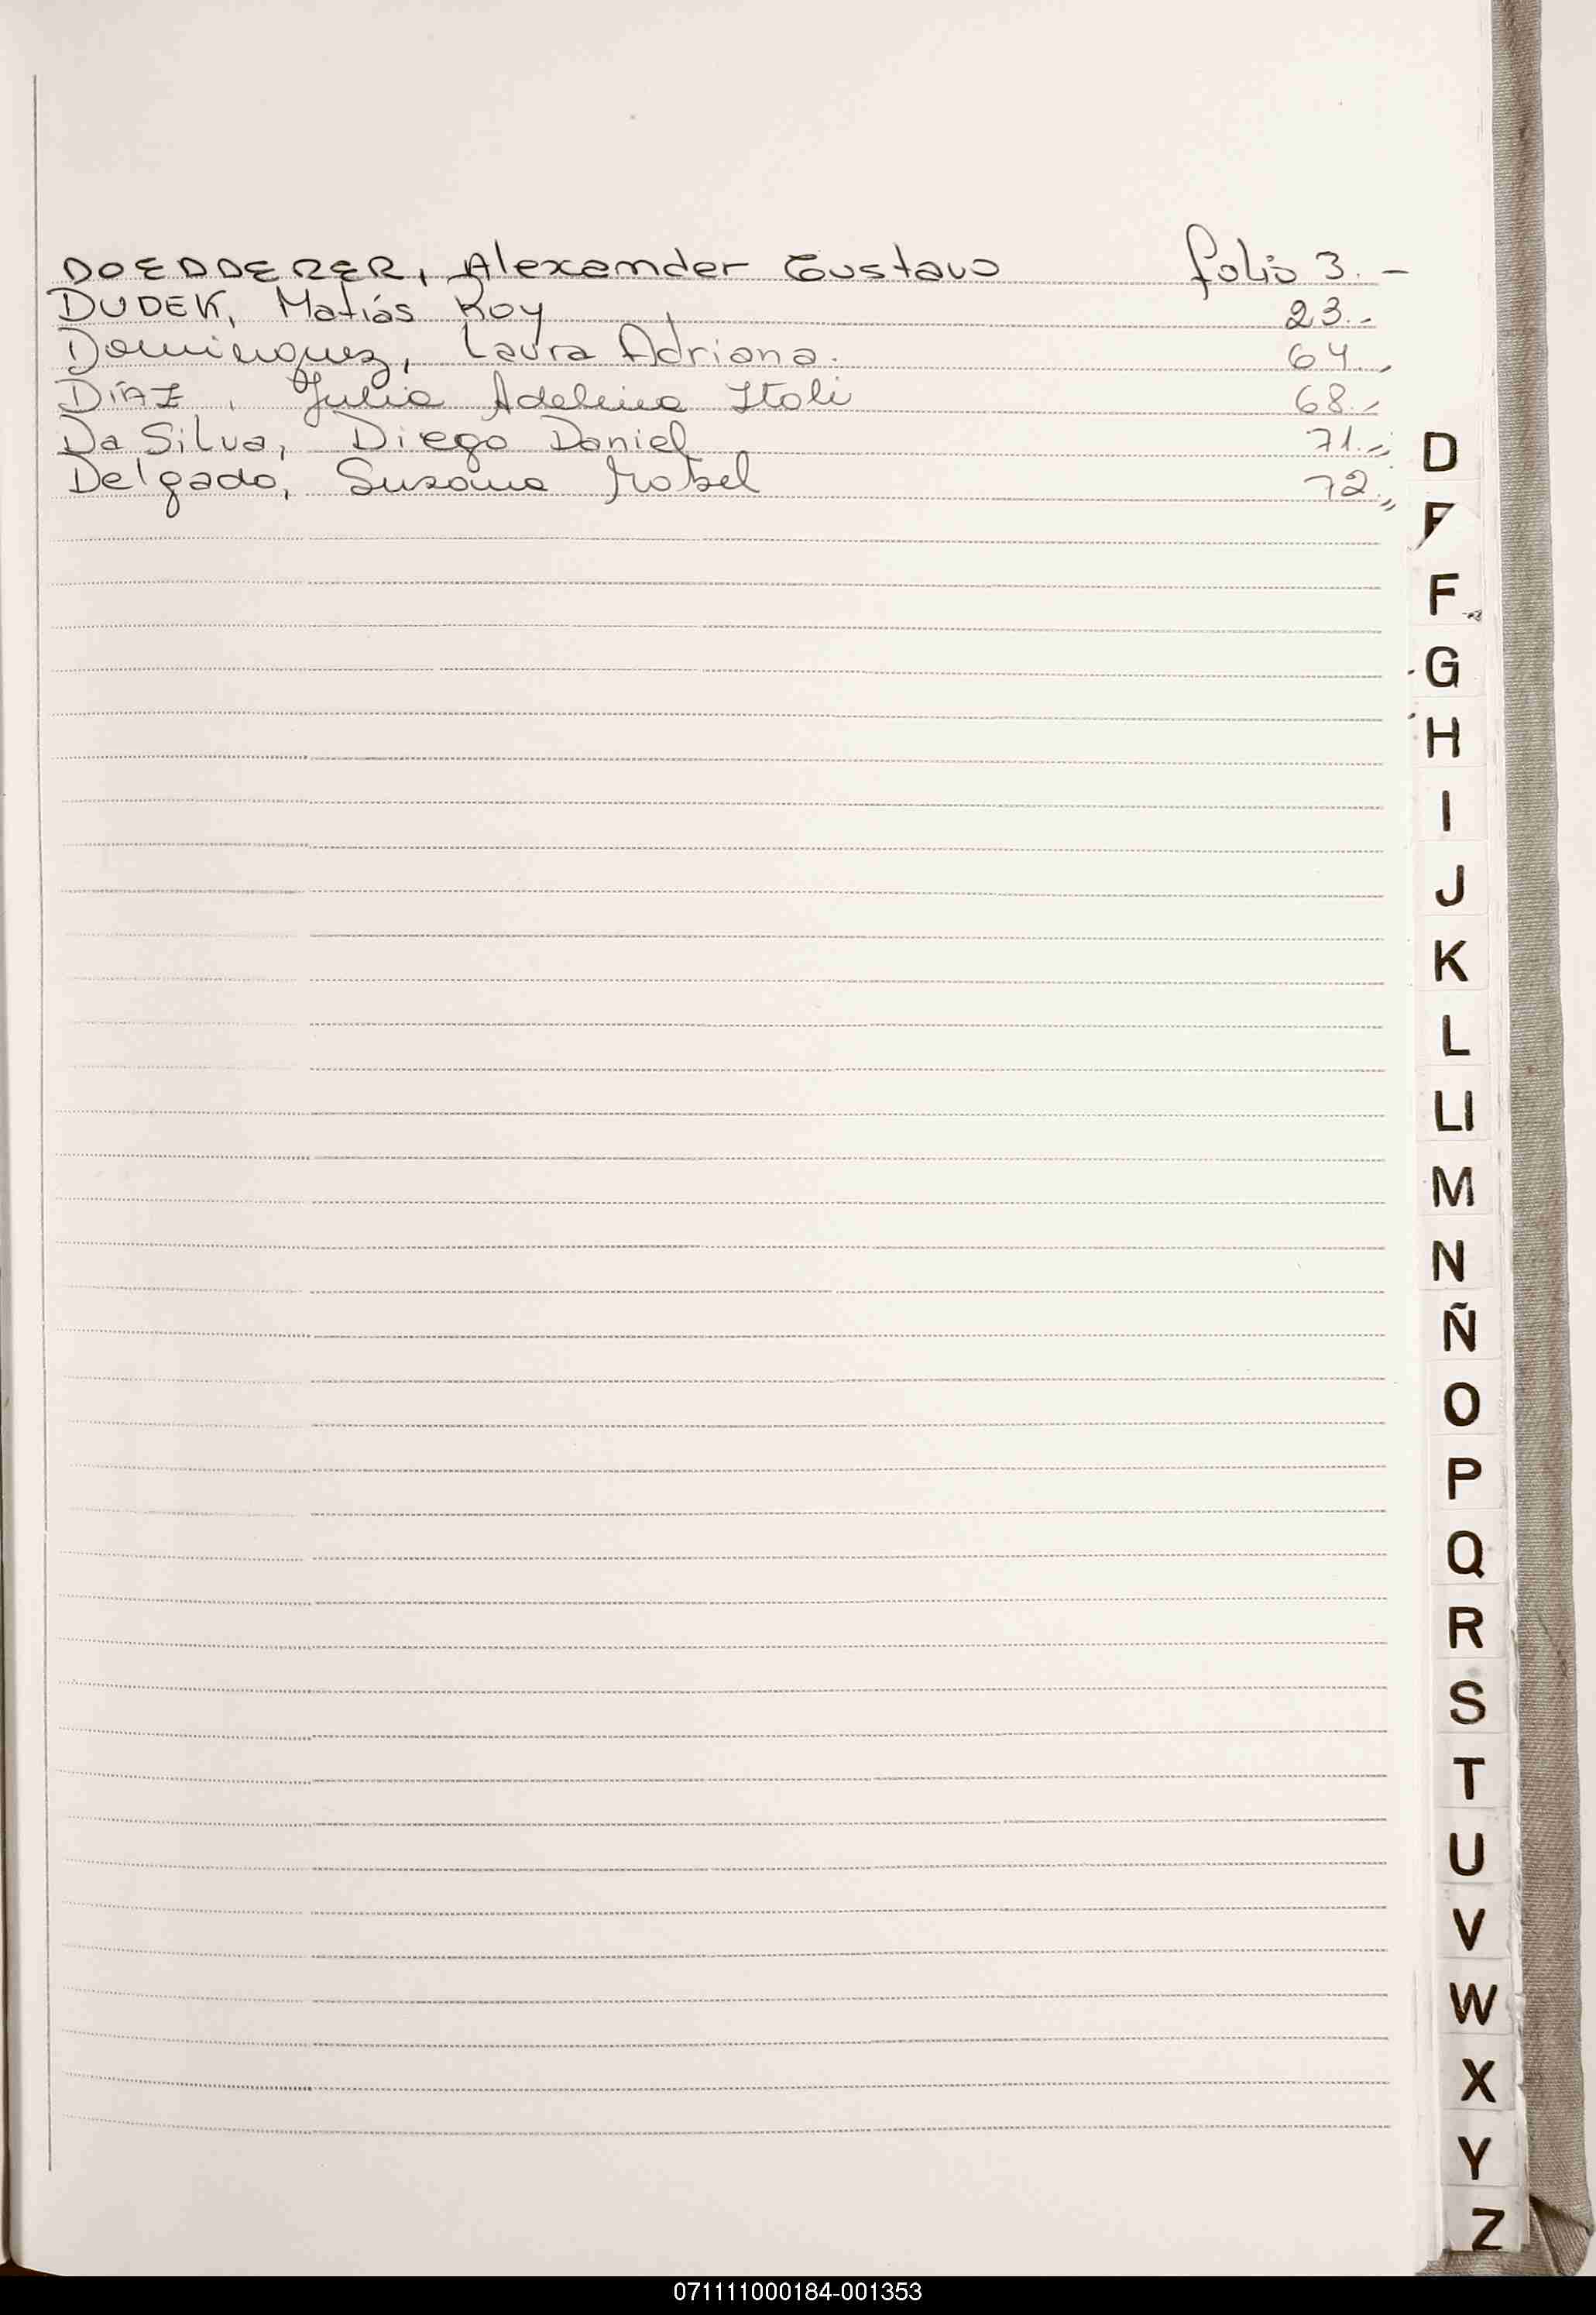 DOEDDERER, Alexander Gustavo folio 3.-
DUDEK, Matiás Roy 23.-
Dominguez, Laura Adriana. 64.,
DÍAZ, Julia Adelina Itali 68.-
Da Silva, Diego Daniel 71.-
Delgado, Susana Mabel 72.,,
D
F
G
H
I
J
K
L
Ll
M
N
Ñ
O
P
Q
R
S
T
U
V
W
X
Y
Z
071111000184-001353